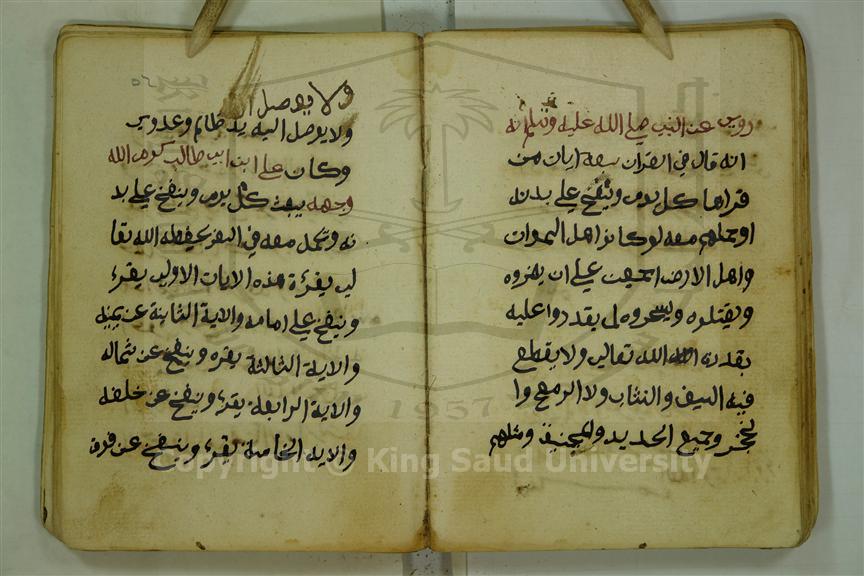 روي عن النبي صلى الله عليه وسلم انه
انه قال في القران سبعة ايات من
قراها كل يوم وينفخ علي بدنه
او يحملهم معه لو كانو اهل السموات
واهل الارض اجمعين علي ان يضروه
ويقتلوه ويسحروه لم يقدروا عليه
بقدرة الله تعالي ولا يقطع
فيه السيف والنشاب ولا الرمح وا
لخنجر وجميع الحديد والمنجنيق ومثلهم
٥٦
ولا يوصل
ولا يوصل اليه يد ظالم وعدوين
وكان علي ابن ابي طالب كرم الله
وجهه كل يوم وينفخ علي بد
نه وتحمل معه في السفر يحفظه الله تعا
لي يقرءة هذه الايات الاولي يقرء
وينفخ علي امامه والاية الثانية عن يمينه
والاية الثالثة يقره وينفخ عن شماله
والاية الرابعة يقرء وينفخ عن خلفه
والاية الخامسة يقرء وينفخ عن فوق
1957
Copyright © King Saud University